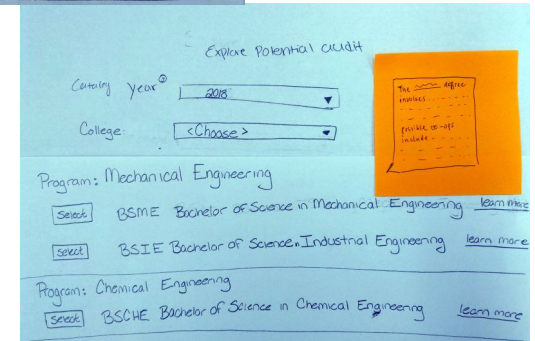 Explore Potential audit
Catalog Year ?
2018
College:
<Choose>
The degree
involves
possible co-ops
include
Program: Mechanical Engineering
Select BSME Bachelor of Science in Mechanical Engineering learn more
Select BSIE Bachelor of Science in Industrial Engineering learn more
Program: Chemical Engineering
Select BSCHE Bachelor of Science in Chemical Engineering learn more